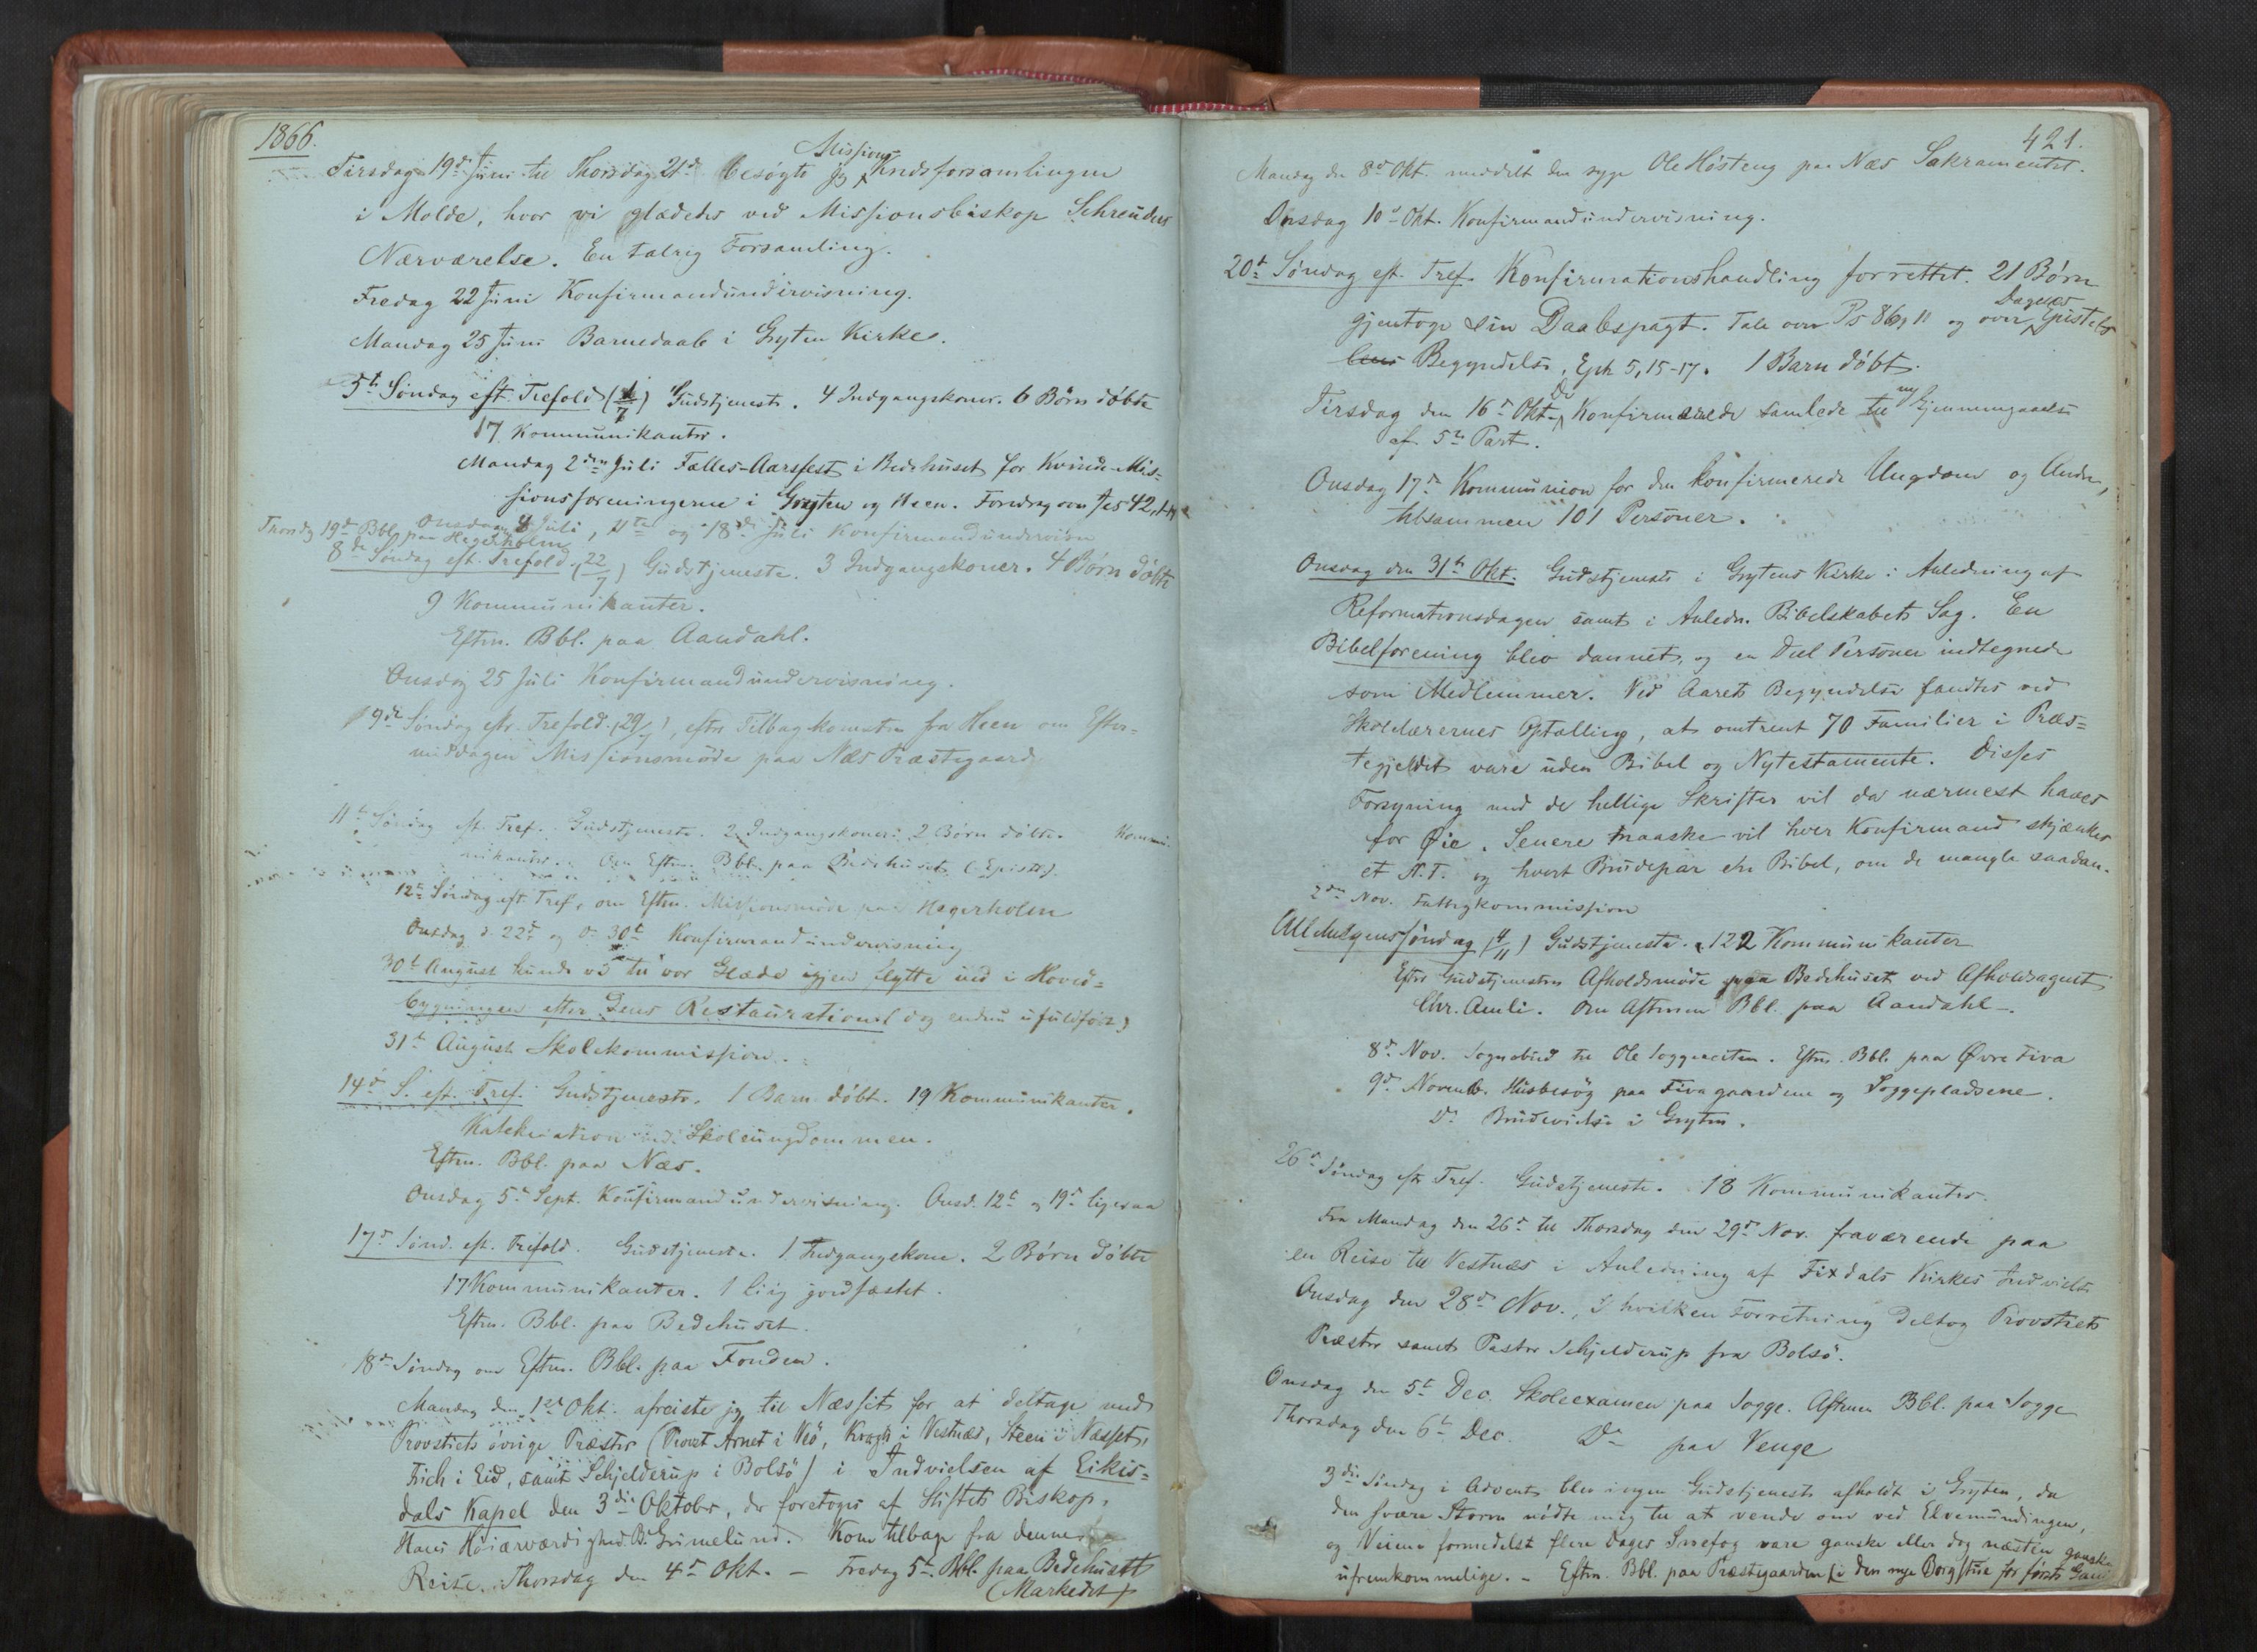 1866.
Tirsdag 19de Juni til Thorsdag 21de besøgte jeg Missions Kredsforsamlingen
i Molde, hvor vi glædedes ved Missionsbiskop Schreuders
Nærværelse. En talrig Forsamling.
Fredag 22 Juni Konfirmandundervisning.
Mandag 25 Juni Barnedaab i Gryten Kirke.
5te Søndag eft. Trefold (1/7) Gudstjeneste. 4 Indgangskoner. 6 Børn døbte
17 Kommunikanter.
Mandag 2den Juli Fælles-Aarsfest i Bedehuset for Kvinde-Mis-
sionsforeningerne i Gryten og Heen. Foredrag over Jes 42,
Onsdag 4 Juli, 11te og 18de Juli Konfirmandundervisn
Torsdg 19de Bbl. paa Hegerholm
8de Søndag eft. Trefold. (22/7) Gudstjeneste. 3 Indgangskoner. 4 Børn døbte
9 Kommunikanter.
Eftm. Bbl. paa Aandahl.
Onsdag 25 Juli Konfirmandundervisning.
9de Søndag eft. Trefold. (29/7), efter Tilbagekomsten fra Heen om Efter-
middagen Missionsmøde paa Næs Præstegaard
11te Søndag eft. Tref. Gudstjeneste. 2 Indgangskoner. 2 Børn døbte. Kommu-
nikanter. Om Eftm. Bbl. paa Bedehuset (Epistl.).
12te Søndag eft. Tref. om Eftm. Missionsmøde paa Hegerholm
Onsdag d. 22de og d. 30te Konfirmandundervisning
30te August kunde vi til vor Glæde igjen flytte ind i Hoved-
bygningen efter dens Restauration (dog endnu ufuldført)
31te August Skolekommission.
14de S. eft. Tref. Gudstjeneste. 1 Barn døbt. 19 Kommunikanter.
Katekisation med Skoleungdommen.
Eftm. Bbl. paa Næs.
Onsdag 5te Sept. Konfirmandundervisning. Onsd. 12te og 19de ligesaa
17de Sønd. eft. Trefold. Gudstjeneste. 1 Indgangskone. 2 Børn døbte
17 Kommunikanter. 1 Liig jordfæstet.
Eftm. Bbl. paa Bedehuset.
18de Søndag om Eftm. Bbl. paa Fonden.
Mandag den 1ste Okt. afreiste jeg til Næsset for at deltage med
Provstiets øvrige Præster (Provst Arnet i Veø, Kragh i Vestnæs, Steen i Næsset,
Fich i Eid, samt Schjelderup i Bolsø) i Indvielsen af Eikis-
dals Kapel den 3die Oktober, der foretoges af Stiftets Biskop,
Hans Høiærværdighed B. Grimelund. Kom tilbage fra denne
Reise Thorsdag den 4de Okt. - Fredag 5te Bbl. paa Bedehuset
(Markedet)
421.
Mandag den 8de Okt. meddelt den syge Ole Høsteng paa Næs Sakramentet.
Onsdag 10de Okt. Konfirmandundervisning.
20de Søndag eft. Tref. Konfirmationshandling forrettet. 21 Børn
gjentoge sin Daabspagt. Tale over Ps 86,11 og over Dagens Epistels
Begyndelse, Eph 5,15-17. 1 Barn døbt.
Tirsdag den 16de Okt. De Konfirmerede samlede til ny Gjennemgaaelse
af 5te Part.
Onsdag 17de Kommunion for den konfirmerede Ungdom og Andre,
tilsammen 101 Personer.
Onsdag den 31te Okt. Gudstjeneste i Grytens Kirke i Anledning af
Reformationsdagen samt i Anledn. Bibelskabets Sag. En
Bibelforening blev dannet, og en Deel Personer indtegnede
som Medlemmer. Ved Aarets Begyndelse fandtes ved
Skolelærernes Optælling, at omtrent 70 Familier i Præs-
tegjeldet vare uden Bibel og Nytestamente. Disses
Forsyning med de hellige Skrifter vil da nærmest haves
for Øie. Senere maaske vil hver Konfirmand skjænkes
et N.T. og hvert Brudepar en Bibel, om de mangle saadan.
2den Nov. Fattigkommission
Allehelgenssøndag (4/11) Gudstjeneste. 122 Kommunikanter
Efter Gudstjenesten Afholdsmøde paa Bedehuset ved Afholdsagent
Chr. Amli. Om Aftenen Bbl. paa Aandahl.
8de Nov. Sognebud til Ole Soggemoen. Eftm. Bbl. paa Øvre Fiva
9de Novemb. Husbesøg paa Fivagaardene og Soggepladsene.
Do Brudevielse i Gryten.
26de Søndag eft. Tref. Gudstjeneste. 18 Kommunikanter.
Fra Mandag den 26de til Thorsdag den 29de Nov. fraværende paa
en Reise til Vestnæs i Anledning af Fixdals Kirkes Indvielse
Onsdag den 28de Nov., i hvilken Forretning deltog Provstiets
Præster samt Pastor Schjelderup fra Bolsø.
Onsdag den 5te Dec. Skoleexamen paa Sogge. Aftenen Bbl. paa Sogge
Thorsdag den 6te Dec. Do paa Venge
3die Søndag i Advent blev ingen Gudstjeneste afholdt i Gryten, da
den svære Storm nødte mig til at vende om ved Elvemundingen,
og Veiene formedelst flere Dages Snefog vare ganske eller dog næsten ganske
ufremkommelige. - Eftm. Bbl. paa Præstegaarden (i den nye Borgstue for første Gang